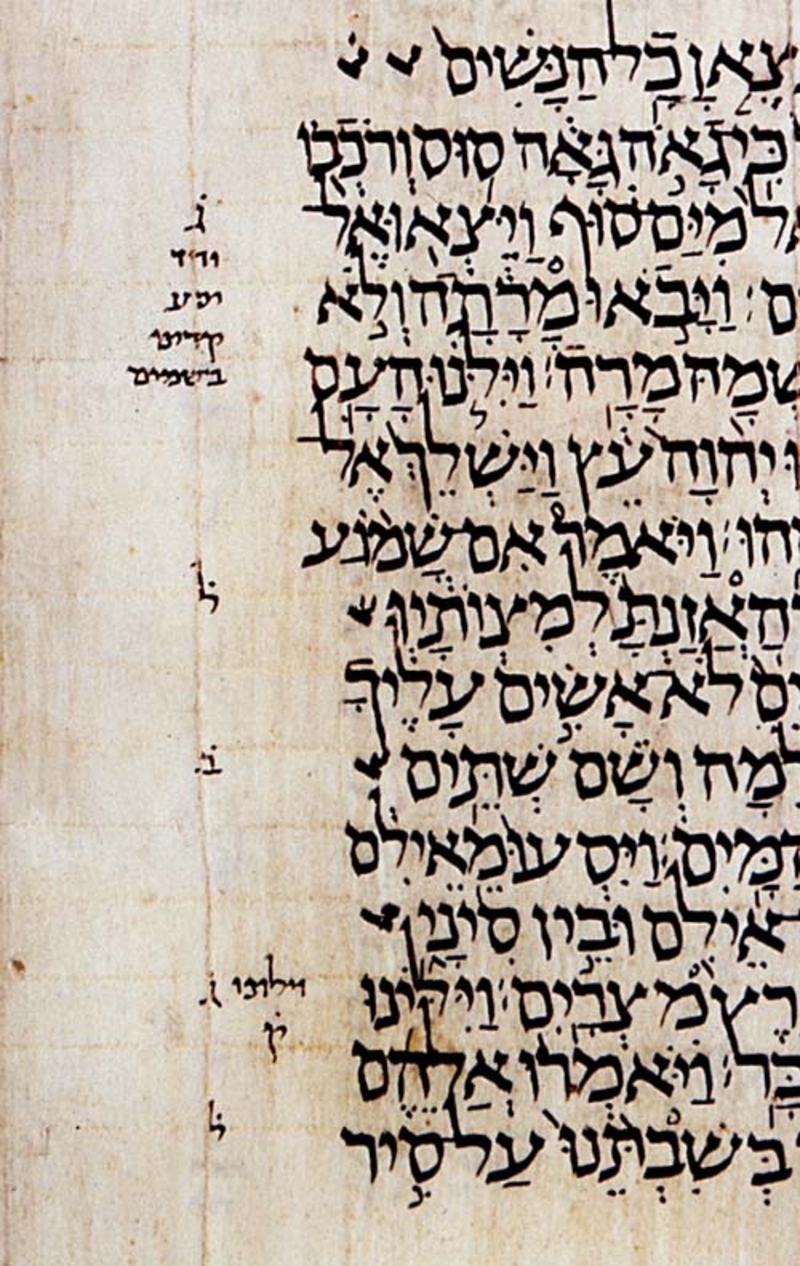 צֶאןָ כָל הַנָּשִׁים
כִּי גָאֹה גָּאָה סוּס וְרֹכְבוֹ
אֵל מִיַּם סוּף וַיֵּצְאוּ אֶל
ים׃ וַיָּבֹאוּ מָרָתָה וְלֹא
שְׁמָהּ מָרָה׃ וַיִּלֹּנוּ הָעָם
הוּ יְהוָה עֵץ וַיַּשְׁלֵךְ אֶל
הוּ׃ וַיֹּאמֶר אִם שָׁמוֹעַ
הַאֲזַנְתָּ לְמִצְוֹתָיו
יִם לֹא אָשִׂים עָלֶיךָ
מָה וְשָׁם שְׁתֵּים
הַמָּיִם׃ וַיִּסְעוּ מֵאֵילִם
אֵילִם וּבֵין סִינָי
רֶץ מִצְרָיִם׃ וַיִּלֹּינוּ
בָּר׃ וַיֹּאמְרוּ אֲלֵהֶם
בְּשִׁבְתֵּנוּ עַל סִיר
ג
יסע
בשמים
ל
ב
ג וילונו
ק
ל